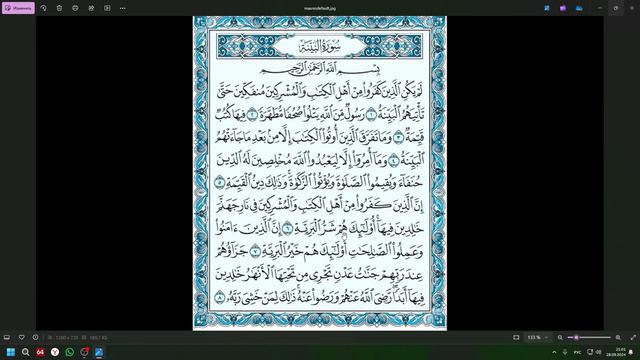 Изменить
maxresdefault.jpg
سُورَةُ البَيِّنَةِ
بِسْمِ اللَّهِ الرَّحْمَٰنِ الرَّحِيمِ
لَمْ يَكُنِ الَّذِينَ كَفَرُوا مِنْ أَهْلِ الْكِتَابِ وَالْمُشْرِكِينَ مُنفَكِّينَ حَتَّىٰ
تَأْتِيَهُمُ الْبَيِّنَةُ ١ رَسُولٌ مِّنَ اللَّهِ يَتْلُوا صُحُفًا مُّطَهَّرَةً ٢ فِيهَا كُتُبٌ
قَيِّمَةٌ ٣ وَمَا تَفَرَّقَ الَّذِينَ أُوتُوا الْكِتَابَ إِلَّا مِن بَعْدِ مَا جَاءَتْهُمُ
الْبَيِّنَةُ ٤ وَمَا أُمِرُوا إِلَّا لِيَعْبُدُوا اللَّهَ مُخْلِصِينَ لَهُ الدِّينَ
حُنَفَاءَ وَيُقِيمُوا الصَّلَاةَ وَيُؤْتُوا الزَّكَاةَ وَذَٰلِكَ دِينُ الْقَيِّمَةِ ٥
إِنَّ الَّذِينَ كَفَرُوا مِنْ أَهْلِ الْكِتَابِ وَالْمُشْرِكِينَ فِي نَارِ جَهَنَّمَ
خَالِدِينَ فِيهَا أُولَٰئِكَ هُمْ شَرُّ الْبَرِيَّةِ ٦ إِنَّ الَّذِينَ ءَامَنُوا
وَعَمِلُوا الصَّالِحَاتِ أُولَٰئِكَ هُمْ خَيْرُ الْبَرِيَّةِ ٧ جَزَاؤُهُمْ
عِندَ رَبِّهِمْ جَنَّاتُ عَدْنٍ تَجْرِي مِن تَحْتِهَا الْأَنْهَارُ خَالِدِينَ
فِيهَا أَبَدًا رَّضِيَ اللَّهُ عَنْهُمْ وَرَضُوا عَنْهُ ذَٰلِكَ لِمَنْ خَشِيَ رَبَّهُ ٨
1280 x 720
185,7 КБ
133 %
64
РУС
21:01
28.09.2024